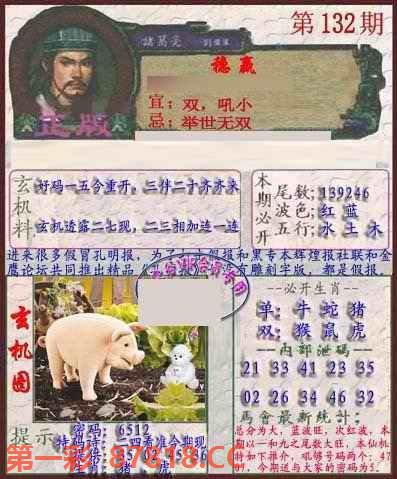 第132期
诸葛亮
稳赢
宜：双，吼小
忌：举世无双
正版
玄机料
好码一五今重开，三伴二十齐齐来
玄机透露二七现，二三相加连一连
本期必开
尾数；139246
波色；红 蓝
五行；水 土 木
进来很多假冒孔明报，为了
假冒和黑专本辉煌报社联和金
鹰论坛共同推出精品
没有雕刻字版，都是假报。
玄机图
必开生肖
单：牛 蛇 猪
双：猴 鼠 虎
内部泄码
21 33 41 23 35
02 26 34 46 32
马会最新统计：
总分为大，蓝波旺，次红波，本
期以一和九之尾数大旺，本仙机
特如下推介，吼够号码两个：47
，今期送与大家的密码为5.
提示
密码：6512
特码诗：二四看准今期现
第一彩 87818.CC